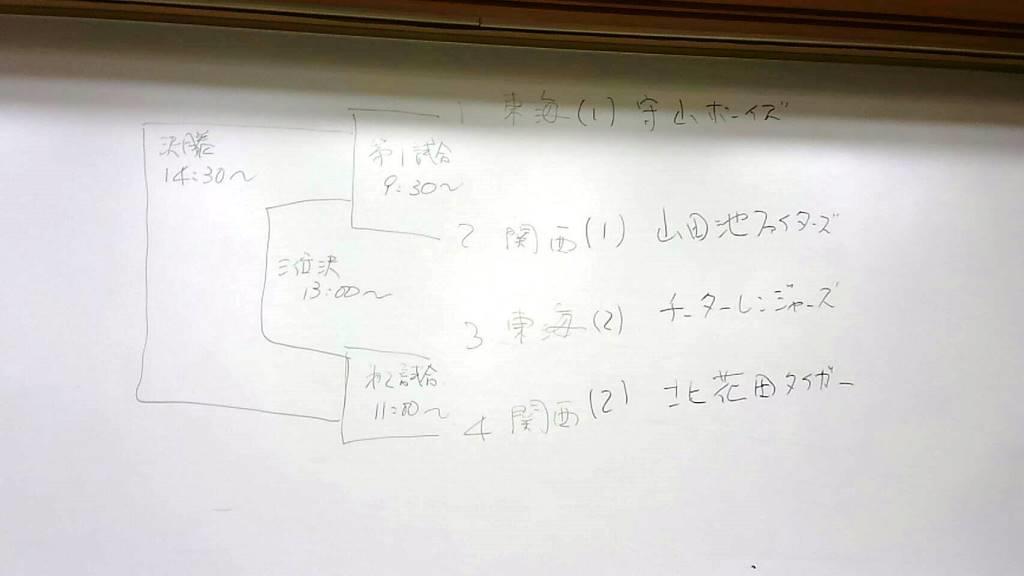 1 東海(1) 守山ボーイズ
決勝
14:30～
第1試合
9:30～
2 関西(1) 山田池ファイターズ
三位決
13:00～
3 東海(2) チーターレンジャーズ
第2試合
11:00～
4 関西(2) 北花田タイガー